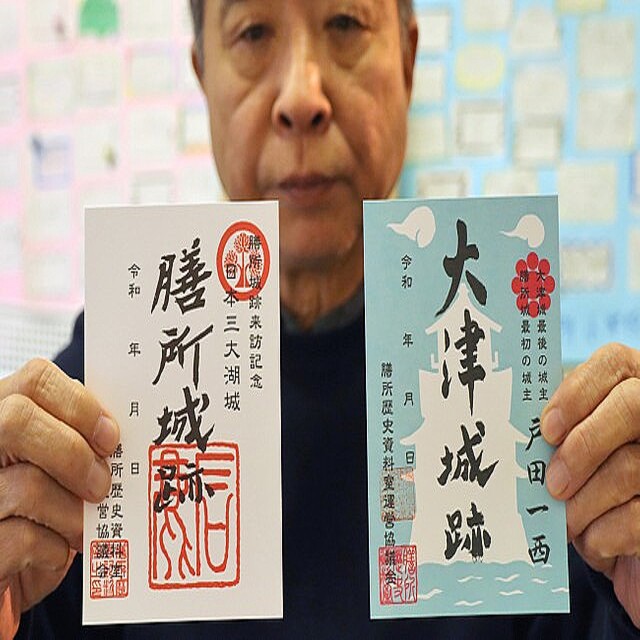 膳所城跡来訪記念
日本三大湖城
膳所城跡
令和 年 月 日
膳所歴史資料室
運営協議会
大津城最後の城主
膳所城最初の城主
戸田一西
大津城跡
令和 年 月 日
膳所歴史資料室運営協議会